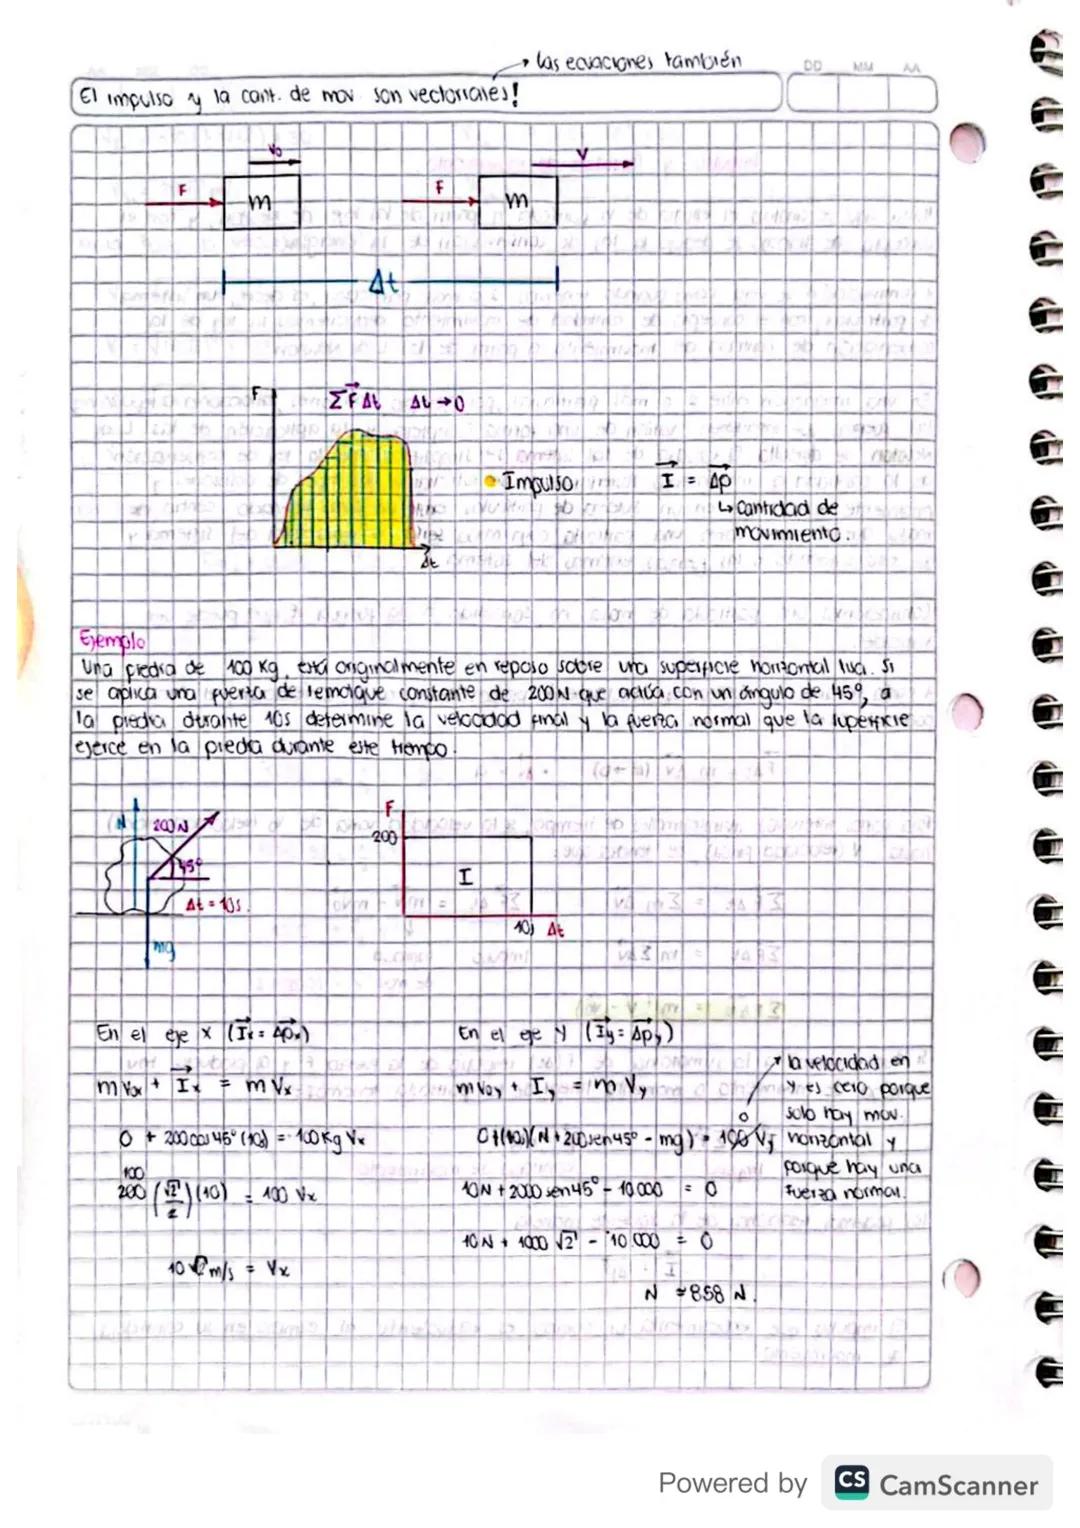 las ecuaciones también
DD MM AA
El impulso y la cant. de mov son vectoriales!
Vo
V
F
m
F
m
Δt
F
ΣF Δt Δt → 0
Δt
Impulso
I = Δp
↳ Cantidad de
movimiento.
Ejemplo
Una piedra de 100 Kg, está originalmente en reposo sobre una superficie horizontal lisa. Si
se aplica una fuerza de remolque constante de 200N que actúa con un ángulo de 45º, a
la piedra durante 10s determine la velocidad final y la fuerza normal que la superficie
ejerce en la piedra durante este tiempo.
N
200N
45º
Δt = 10s.
mg
F
200
I
10s Δt
En el eje x (Ix = Δpx)
mVox + Ix = mVx
0 + 200cos45º(10s) = 100Kg Vx
100
200 (√2/2)(10) = 100 Vx
10√2 m/s = Vx
En el eje Y (Iy = Δpy)
mVoy + Iy = mVy
0
0+(10s)(N+200sen45º - mg) = 100 Vy
10N + 2000sen45º - 10000 = 0
10N + 1000√2 - 10000 = 0
N ≈ 858 N.
la velocidad en
y es cero porque
solo hay mov.
horizontal y
porque hay una
fuerza normal.
Powered by CS CamScanner